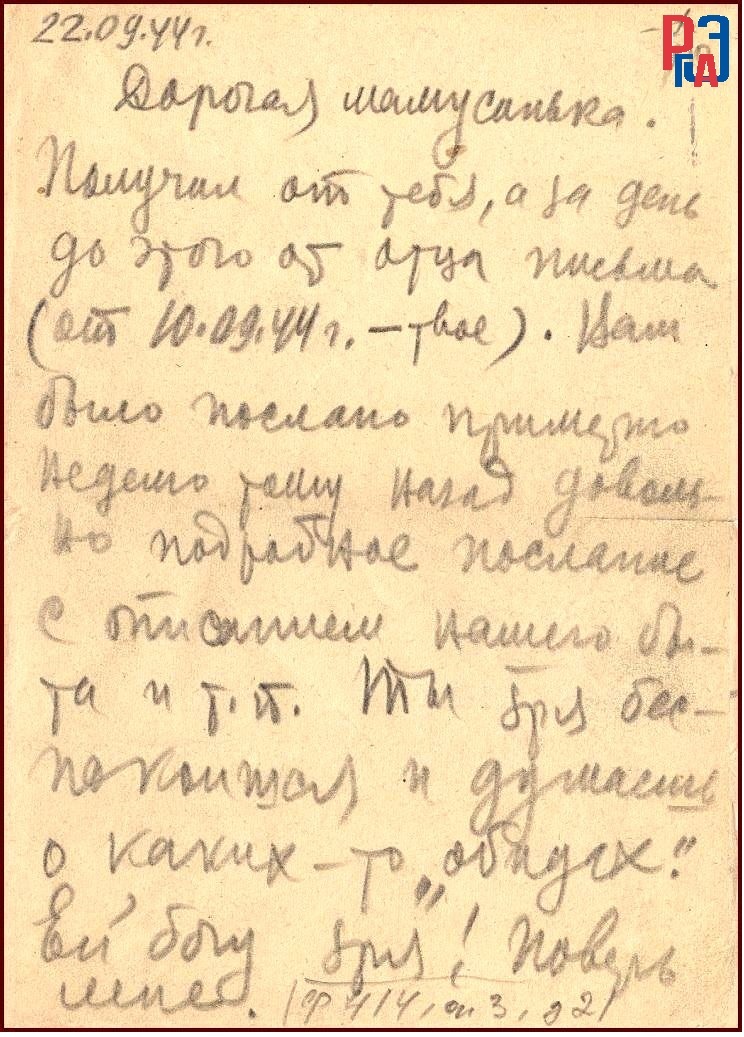 22.09.44г.
РГАЭ
Дорогая мамусинька.
Получил от тебя, а за день
до этого от отца письма
(от 10.09.44 г. – твое). Нам
было послано примерно
неделю тому назад доволь-
но подробное послание
с описанием нашего бы-
та и т.п. Ты зря бес-
покоишся и думаешь
о каких-то „обидах".
Ей богу зря! Поверь
мне.
(ф 414, оп. 3, д 2)